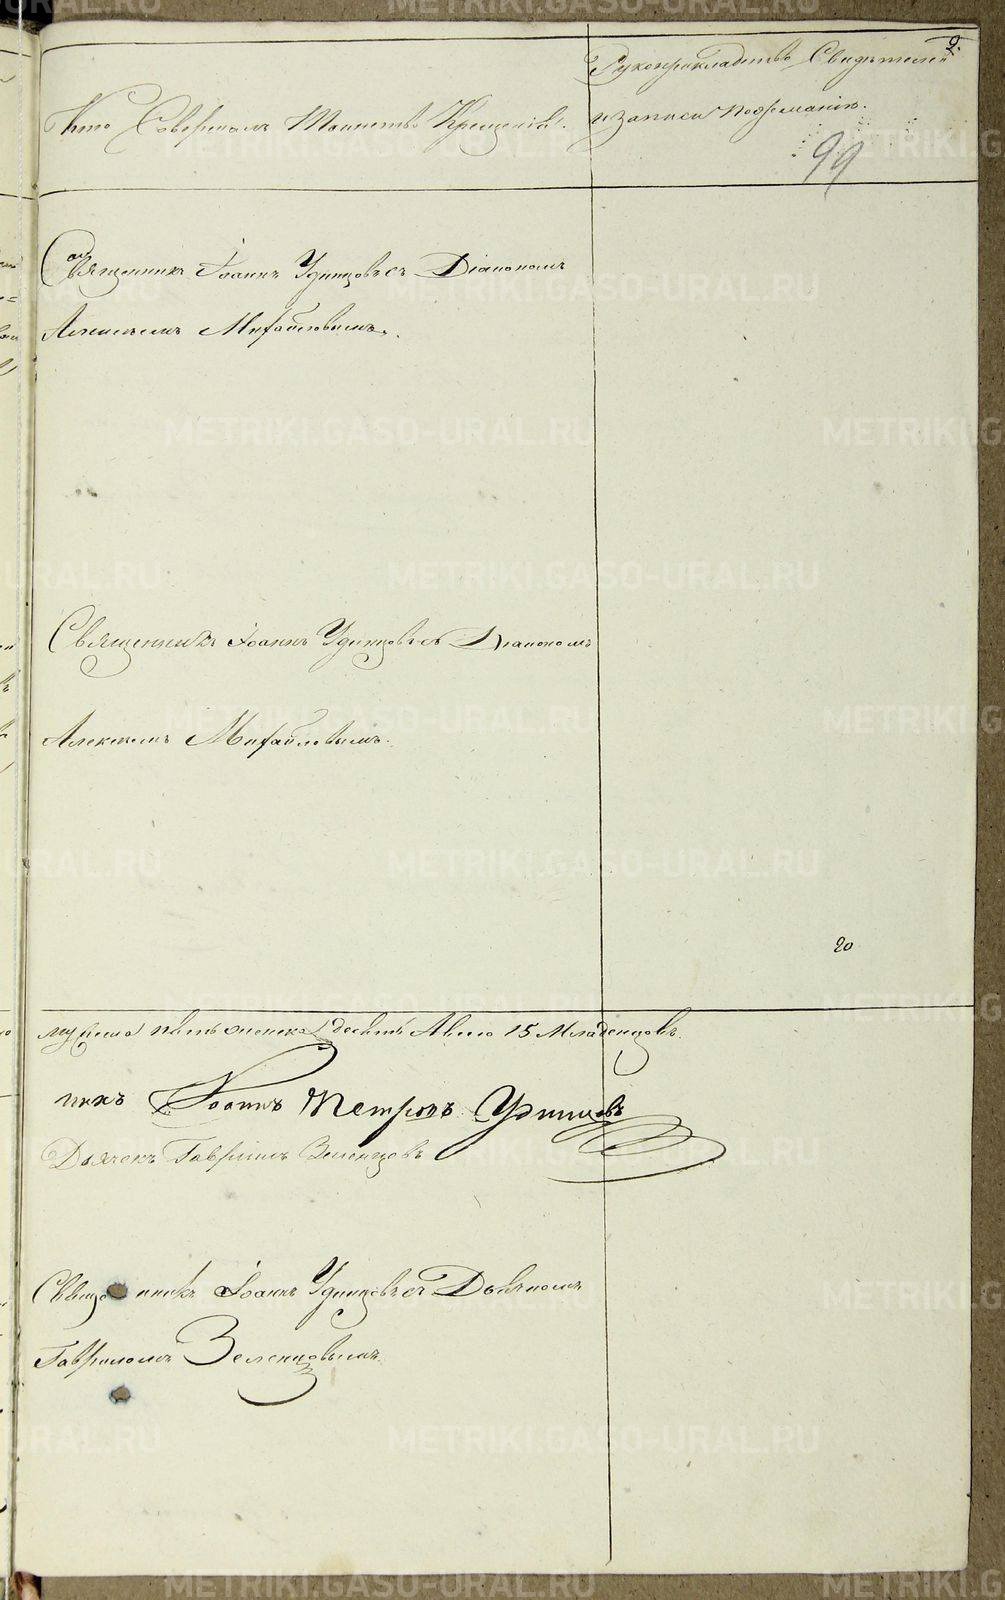 2.
Кто Совершалъ Таинство Крещенія.
Рукоприкладство Свидѣтелей
и записи по желанію.
99
Священникъ Іоаннъ Удинцовъ съ Діакономъ
Алексѣемъ Михайловымъ.
Священникъ Іоаннъ Удинцовъ съ Діакономъ
Алексѣемъ Михайловымъ.
20
мужеска пять женска десять А всего 15 Младенцовъ.
никъ Іоаннъ Петровъ Удинцовъ
Дьячекъ Гавріилъ Зеленцовъ
Іоаннъ Удинцовъ съ Дьячкомъ
Гавріиломъ Зеленцовымъ.
METRIKI.GASO-URAL.RU